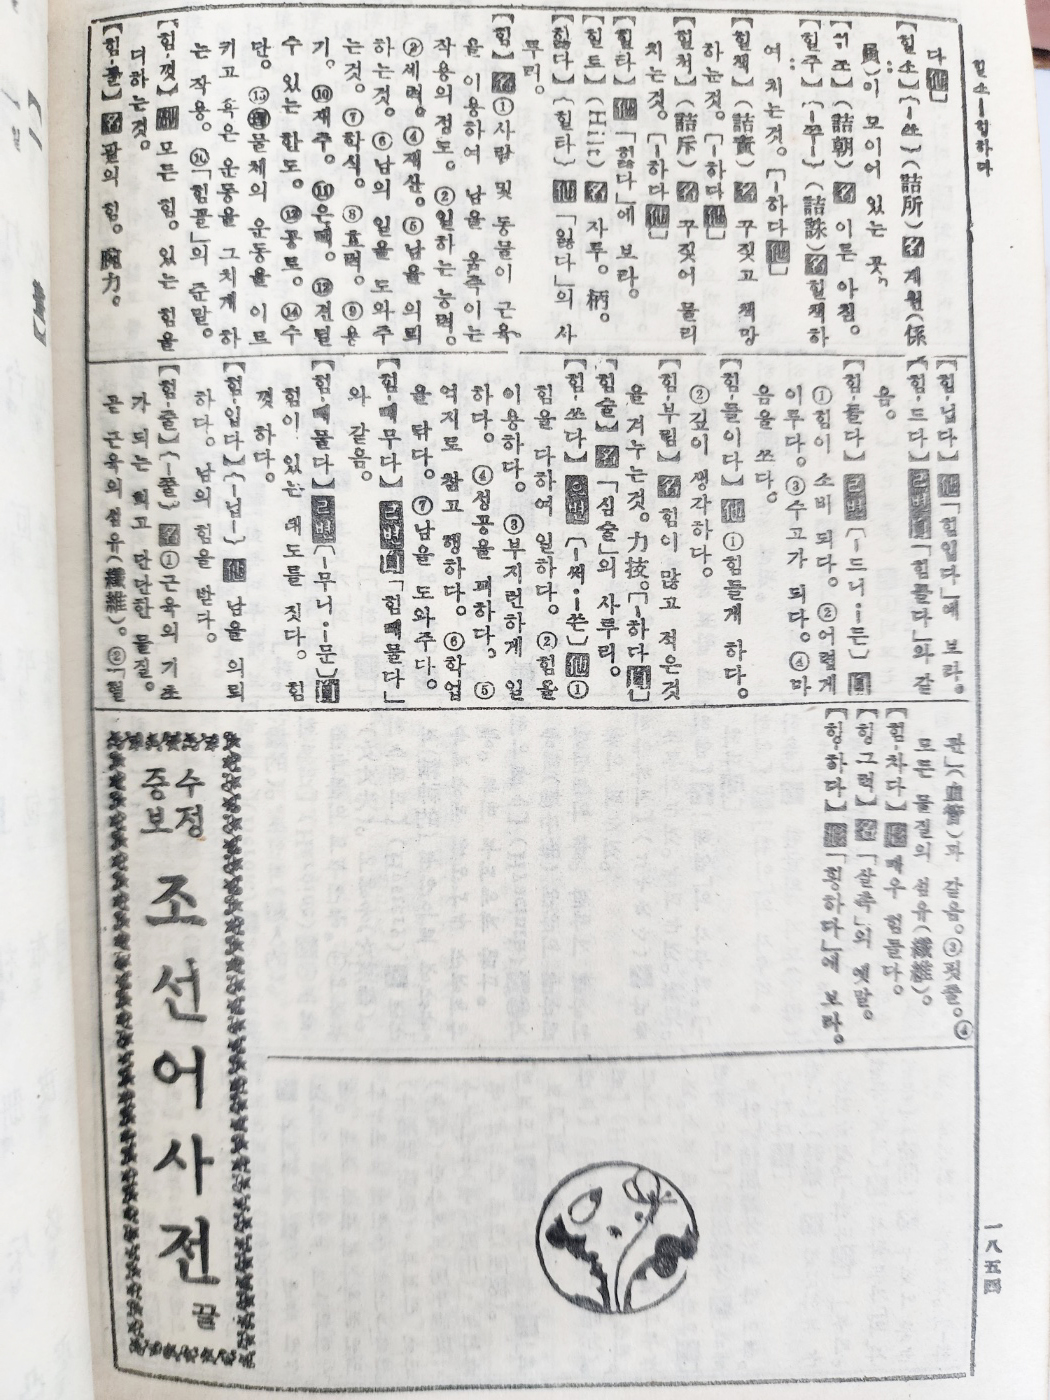 힐소―힝하다
다[他]
【힐소】(―쏘)(詰所)[名] 계원(係
員)이 모이어 있는 곳.
(詰朝)[名] 이튿 아침.
【힐주】(―쭈―)(詰誅)[名] 힐책하
여 치는것. 「―하다[他]」
【힐책】(詰責)[名] 꾸짖고 책망
하는것. 「―하다[他]」
【힐척】(詰斥)[名] 꾸짖어 물리
치는것. 「―하다[他]」
【힐타】[他]「힗다」에 보라.
【힐토】[名] 자루. 柄.
【힗다】(힐타)[他]「잃다」의 사
투리.
【힘】[名]①사람 및 동물이 근육
을 이용하여 남을 움주이는
작용의 정도. ②일하는 능력.
③세력. ④재산. ⑤남을 의뢰
하는것. ⑥남의 일을 도와주
는것. ⑦학식. ⑧효력. ⑨용
기. ⑩재주. ⑪은덕. ⑫견딜
수 있는 한도. ⑬공로. ⑭수
단. ⑮[理]물체의 운동을 이르
키고 혹은 운동을 그치게 하
는 작용. ⑯「힘꼴」의 준말.
【힘·껏】[副]모든 힘. 있는 힘을
다하는것.
【힘·꼴】[名]팔의 힘. 腕力.
【힘·닙다】[他]「힘입다」에 보라.
【힘·드다】[ㄹ변][自]「힘들다」와 같
음.
【힘·들다】[ㄹ변](―드니·―든)[自]
①힘이 소비 되다. ②어렵게
이루다. ③수고가 되다. ④마
음을 쓰다.
【힘·들이다】[他]①힘들게 하다.
②깊이 생각하다.
【힘·부림】[名]힘이 많고 적은것
을 겨누는것. 力技. 「―하다[自]」
【힘술】[名]「심술」의 사투리.
【힘·쓰다】[으변](―써·―쓴)[他]①
힘을 다하여 일하다. ②힘을
이용하다. ③부지런하게 일
하다. ④성공을 꾀하다. ⑤
억지로 참고 행하다. ⑥학업
을 닦다. ⑦남을 도와주다.
【힘·빼무다】[ㄹ변][自]「힘빼물다」
와 같음.
【힘·빼물다】[ㄹ변](―무니·―문)[自]
힘이 있는 태도를 짓다. 힘
껏 하다.
【힘·입다】(―닙―)[他] 남을 의뢰
하다. 남의 힘을 받다.
【힘·줄】(―쭐)[名]①근육의 기초
가 되는 희고 단단한 물질.
곧 근육의 섬유(纖維). ②「혈
관」(血管)과 같음. ③핏줄. ④
모든 물질의 섬유(纖維).
【힘·차다】매우 힘들다.
【힝그럭】[名]「살촉」의 옛말.
【힝·하다】「횡하다」에 보라.
수정
증보
조선어사전
끝
一八五四